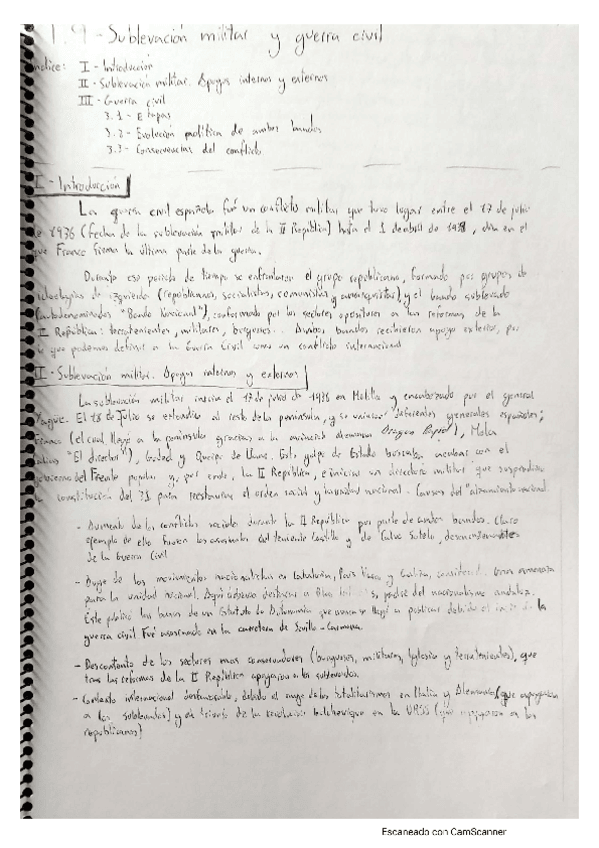 1.9 - Sublevación militar y guerra civil
Índice: I - Introducción
II - Sublevación militar. Apoyos internos y externos
III - Guerra civil
3.1 - Etapas
3.2 - Evolución política de ambos bandos
3.3 - Consecuencias del conflicto
I - Introducción
La guerra civil española fue un conflicto militar que tuvo lugar entre el 17 de julio
de 1936 (fecha de la sublevación militar de la II República) hasta el 1 de abril de 1939, día en el
que Franco firma la última parte de la guerra.
Durante ese periodo de tiempo se enfrentaron el grupo republicano, formado por grupos de
ideologías de izquierda (republicanos, socialistas, comunistas y anarquistas) y el bando sublevado
(autodenominados "Bando Nacional"), conformado por los sectores opositores a las reformas de la
II República: terratenientes, militares, burgueses... Ambos bandos recibieron apoyo exterior, por
lo que podemos definir a la Guerra Civil como un conflicto internacional
II - Sublevación militar. Apoyos internos y externos
La sublevación militar inicia el 17 de julio de 1936 en Melilla y encabezado por el general
Yagüe. El 18 de Julio se extendió al resto de la península, y se unieron diferentes generales españoles;
Franco (el cual llegó a la península gracias a la Dragon Rapid), Mola
"El director"), Goded y Queipo de Llano. Este golpe de Estado buscaba acabar con el
gobierno del Frente popular y, por ende, la II República, e iniciar un directorio militar que suspendiese
la constitución del 31 para restaurar el orden social y la unidad nacional. Causas del "alzamiento nacional
- Aumento de los conflictos sociales durante la II República por parte de ambos bandos. Claro
ejemplo de ello fueron los asesinatos del Teniente Castillo y de Calvo Sotelo, desencadenantes
de la Guerra Civil
- Auge de los movimientos nacionalistas en Cataluña, País Vasco y Galicia, una amenaza
para la unidad nacional. destacar a Blas padre del nacionalismo andaluz.
Este publicó las bases de un Estatuto de Autonomía que nunca se llegó a publicar debido al inicio de la
guerra civil. Fue asesinado en la carretera de Sevilla - Carmona.
- Descontento de los sectores más conservadores (burgueses, militares, Iglesia y terratenientes), que
tras las reformas de la II República apoyaron a los sublevados.
- Contexto internacional desfavorable, debido al auge de los totalitarismos en Italia y Alemania (que apoyaron
a los sublevados) y de la revolución bolchevique en la URSS (que apoyaron a los
republicanos)
Escaneado con CamScanner